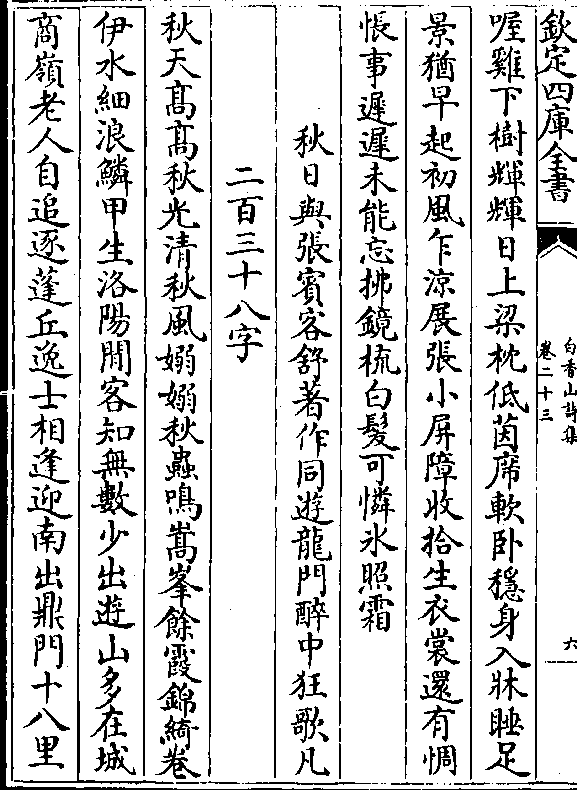 欽定四庫全書
白香山詩集
卷二十三
六
喔雞下樹輝輝日上梁枕低茵席軟卧穩身入牀睡足
景猶早起初風乍涼展張小屏障收拾生衣裳還有惆
悵事遲遲未能忘拂鏡梳白髮可憐氷照霜
秋日與張賓客舒著作同遊龍門醉中狂歌凡
二百三十八字
秋天髙髙秋光清秋風嫋嫋秋蟲鳴嵩峯餘霞錦綺卷
伊水細浪鱗甲生洛陽閒客知無數少出遊山多在城
商嶺老人自追逐蓬丘逸士相逢迎南出鼎門十八里